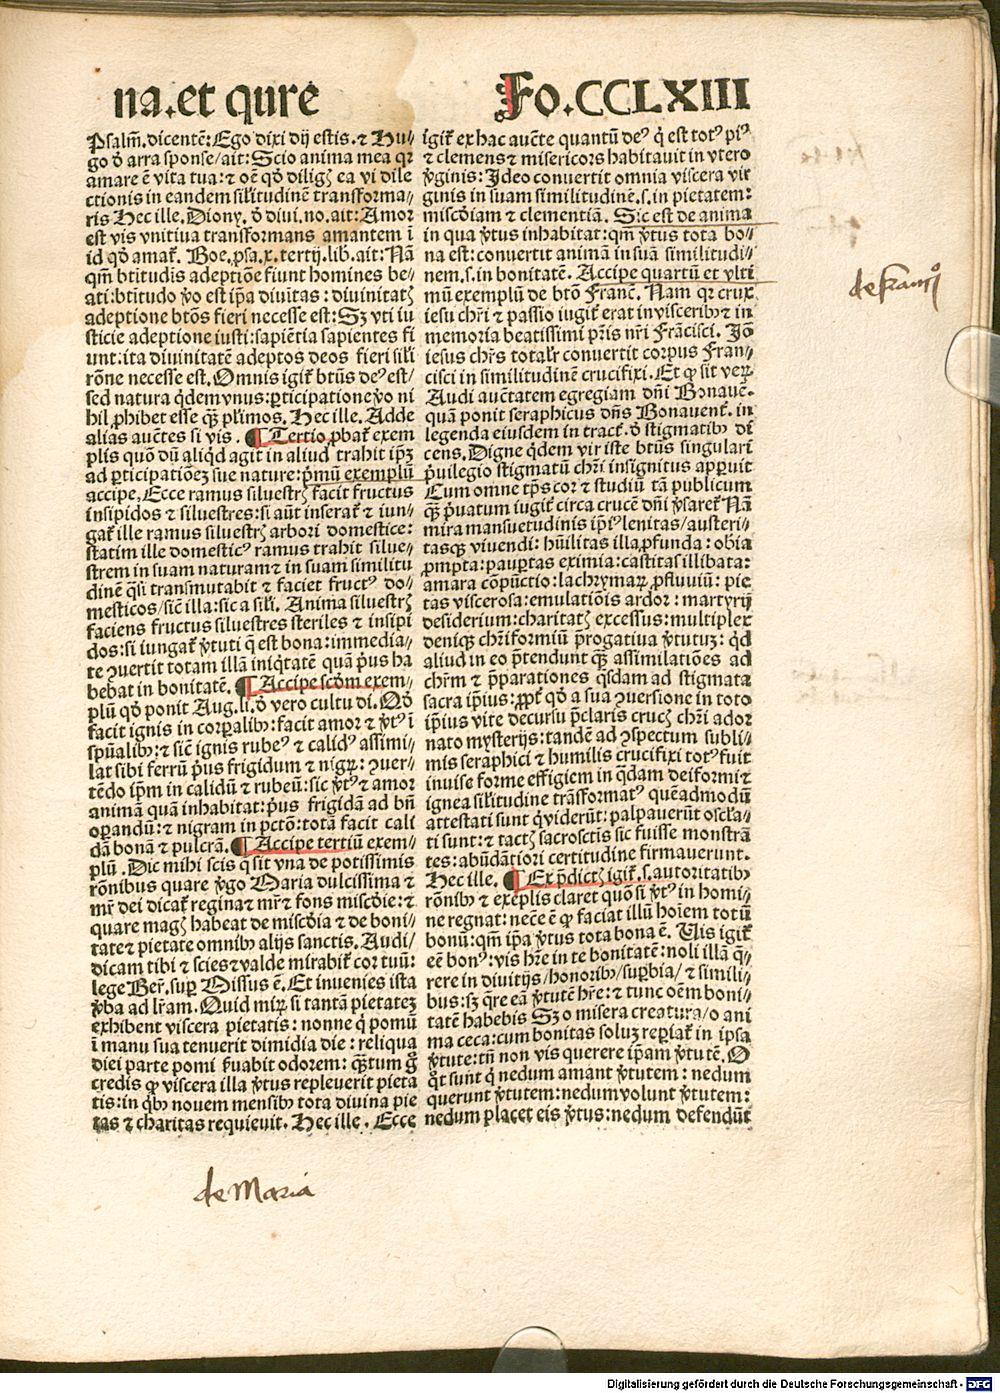 na.et qure
Fo.CCLXIII
Psalm̄.dicentē: Ego dixi dij estis.⁊ Hu⸗
go ð arra sponse/ait: Scio anima mea qꝛ
amare ē vita tua: ⁊ oē qð diligꝭ ea vi dile
ctionis in eandem silitudinē transforma⸗
ris Hec ille. Diony. ð divi.no.ait: Amor
est vis vnitiva transformans amantem ī
id qð amat̄. Boe.psa.x.tertij.lib.ait: Nā
qm̄ btitudis adeptiōe fiunt homines be⸗
ati: btitudo v̾o est ip̄a diuītas: divinitatꝭ
adeptione btōs fieri necesse est: Sꝫ vti iu
sticie adeptione iusti: sapiētia sapientes fi
unt: ita divinitatē adeptos deos fieri sili
rōne necesse est. Omnis igit̄ btūs deꝰ est/
sed natura qdem vnus: ꝑticipatione v̾o ni
hil ꝓhibet esse qꝫ plimos. Hec ille. Adde
alias auctes si vis. ¶ Tertio ꝓbat̄ exem
plis quō dū aliqd agit in aliud trahit ip̄ꝫ
ad ꝑticipationeꝫ sue nature: p̄mū exemplū
accipe. Ecce ramus siluestrꝭ facit fructus
insipidos ⁊ siluestres: si aūt inserat̄ ⁊ iun⸗
gat̄ ille ramus siluestrꝭ arbori domestice:
statim ille domesticꝰ ramus trahit silue⸗
strem in suam naturam ⁊ in suam similitu
dinē qsi transmutabit ⁊ faciet fructꝰ do⸗
mesticos/sicē illa: sic a sili. Anima siluestrꝭ
faciens fructus siluestres steriles ⁊ insipi
dos: si iungat̄ v̾tuti q̄ est bona: immedia⸗
te ꝯuertit totam illā iniqtatē quā p̾us ha
bebat in bonitatē. ¶ Accipe scōm exem⸗
plū qð ponit Aug. li. ð vero cultu di. Qð
facit ignis in corꝑalibꝫ: facit amor ⁊ v̾tꝰ ī
spūalibꝫ: ⁊ sicē ignis rubeꝰ ⁊ calidꝰ assimi⸗
lat sibi ferrū p̾us frigidum ⁊ nigꝝ: ꝯuer⸗
tēdo ip̄m in calidū ⁊ rubeū: sic v̾tꝰ ⁊ amor
animā quā inhabitat: p̾us frigidā ad bn̄
oꝑandū: ⁊ nigram in pctō: totā facit cali
dā bonā ⁊ pulcrā. ¶ Accipe tertiū exem⸗
plū. Dic mihi scis q̄ sit vna de potissimis
rōnibus quare v̾go Maria dulcissima ⁊
mr̄ dei dicat̄ regina ⁊ mr̄ ⁊ fons miscðie: ⁊
quare magꝭ habeat de miscðia ⁊ de boni⸗
tate ⁊ pietate omnibꝫ alijs sanctis. Audi/
dicam tibi ⁊ scies ⁊ valde mirabit̄ cor tuū:
lege Ber̄. suꝑ Missus ē. Et invenies ista
v̾ba ad lr̄am. Quid miꝝ si tantā pietateꝫ
exhibent viscera pietatis: nonne q̇ pomū
ī manu sua tenuerit dimidia die: reliqua
diei parte pomi ẜuabit odorem: qꝫtum g̊
credis ꝙ viscera illa v̾tus repleuerit pieta
tis: in qbꝫ nouem mensibꝫ tota divina pie
tas ⁊ charitas requieuit. Hec ille. Ecce
igit̄ ex hac aucte quantū deꝰ q̇ est totꝰ piꝰ
⁊ clemens ⁊ misericors habitauit in vtero
v̾ginis: Ideo convertit omnia viscera vir
ginis in suam similitudinē.s.in pietatem:
miscðiam ⁊ clementiā. Sic est de anima
in qua v̾tus inhabitat: qm̄ v̾tus tota bo⸗
na est: convertit animā in suā similitudi⸗
nem.s.in bonitatē. Accipe quartū et vlti
mū exemplū de btō Franc̄. Nam qꝛ crux
iesu chr̄i ⁊ passio iugit̄ erat in visceribꝫ ⁊ in
memoria beatissimi p̄ris nr̄i Frācisci. Iō
iesus chr̄s totalr̄ convertit corpus Fran⸗
cisci in similitudinē crucifixi. Et ꝙ sit veꝝ
Audi auctatem egregiam dn̄i Bonauē.
quā ponit seraphicus dn̄s Bonauent̄. in
legenda eiusdem in tract̄. ð stigmatibꝫ di
cens. Digne qdem vir iste btūs singulari
p̾uilegio stigmatū chr̄i insignitus apꝑuit
Cum omne tp̄s cor ⁊ studiū tā publicum
qꝫ p̾uatum iugit̄ circa crucē dn̄i v̾saret̄ Nā
mira mansuetudinis ip̄iꝰ lenitas/austeri⸗
tasqꝫ vivendi: hūilitas illa ꝓfunda: obīa
ꝓmpta: pauꝑtas eximia: castitas illibata:
amara cōpūctio: lachrymaꝝ ꝓfluuiū: pie
tas viscerosa: emulatiōis ardor: martyrij
desiderium: charitatꝭ excessus: multiplex
deniqꝫ chr̄iformiū p̄rogativa v̾tutuꝫ: qd
aliud in eo p̄tendunt qꝫ assimilatiōes ad
chr̄m ⁊ p̄parationes qsdam ad stigmata
sacra ip̄ius: ꝓpt̄ qð a sua ꝯuersione in toto
ip̄ius vite decursu p̄claris crucꝭ chr̄i ador
nato mysterijs: tandē ad ꝯspectum subli⸗
mis seraphici ⁊ humilis crucifixi totꝰ fuit
invise forme effigiem in qdam deiformi ⁊
ignea silitudine trāsformatꝰ quēadmodū
attestati sunt q̇ viderūt: palpauerūt oscla⸗
ti sunt: ⁊ tactꝭ sacrosctis sic fuisse monstrā
tes: abūdātiori certitudine firmauerunt.
Hec ille. ¶ Ex p̄dictꝭ igit̄.s.autoritatibꝫ
rōnibꝫ ⁊ exēplis claret quō si v̾tꝰ in homi⸗
ne regnat: necē ē ꝙ faciat illū hoīem totū
bonū: qm̄ ip̄a v̾tus tota bona ē. Uis igit̄
eē bonꝰ: vis hr̄e in te bonitatē: noli illā q̄⸗
rere in divitijs/honoribꝫ/suꝑbia/⁊ simili⸗
bus: sꝫ q̄re eā v̾tutē hr̄e: ⁊ tunc oēm boni⸗
tatē habebis Sꝫ o misera creatura/o ani
ma ceca: cum bonitas soluꝫ reꝑiat̄ in ipsa
v̾tute: tn̄ non vis querere ip̄am v̾tutē. O
qͦt sunt q̇ nedum amant v̾tutem: nedum
querunt v̾tutem: nedum volunt v̾tutem:
nedum placet eis v̾tus: nedum defendūt
de Maria
Digitalisierung gefördert durch die Deutsche Forschungsgemeinschaft - DFG